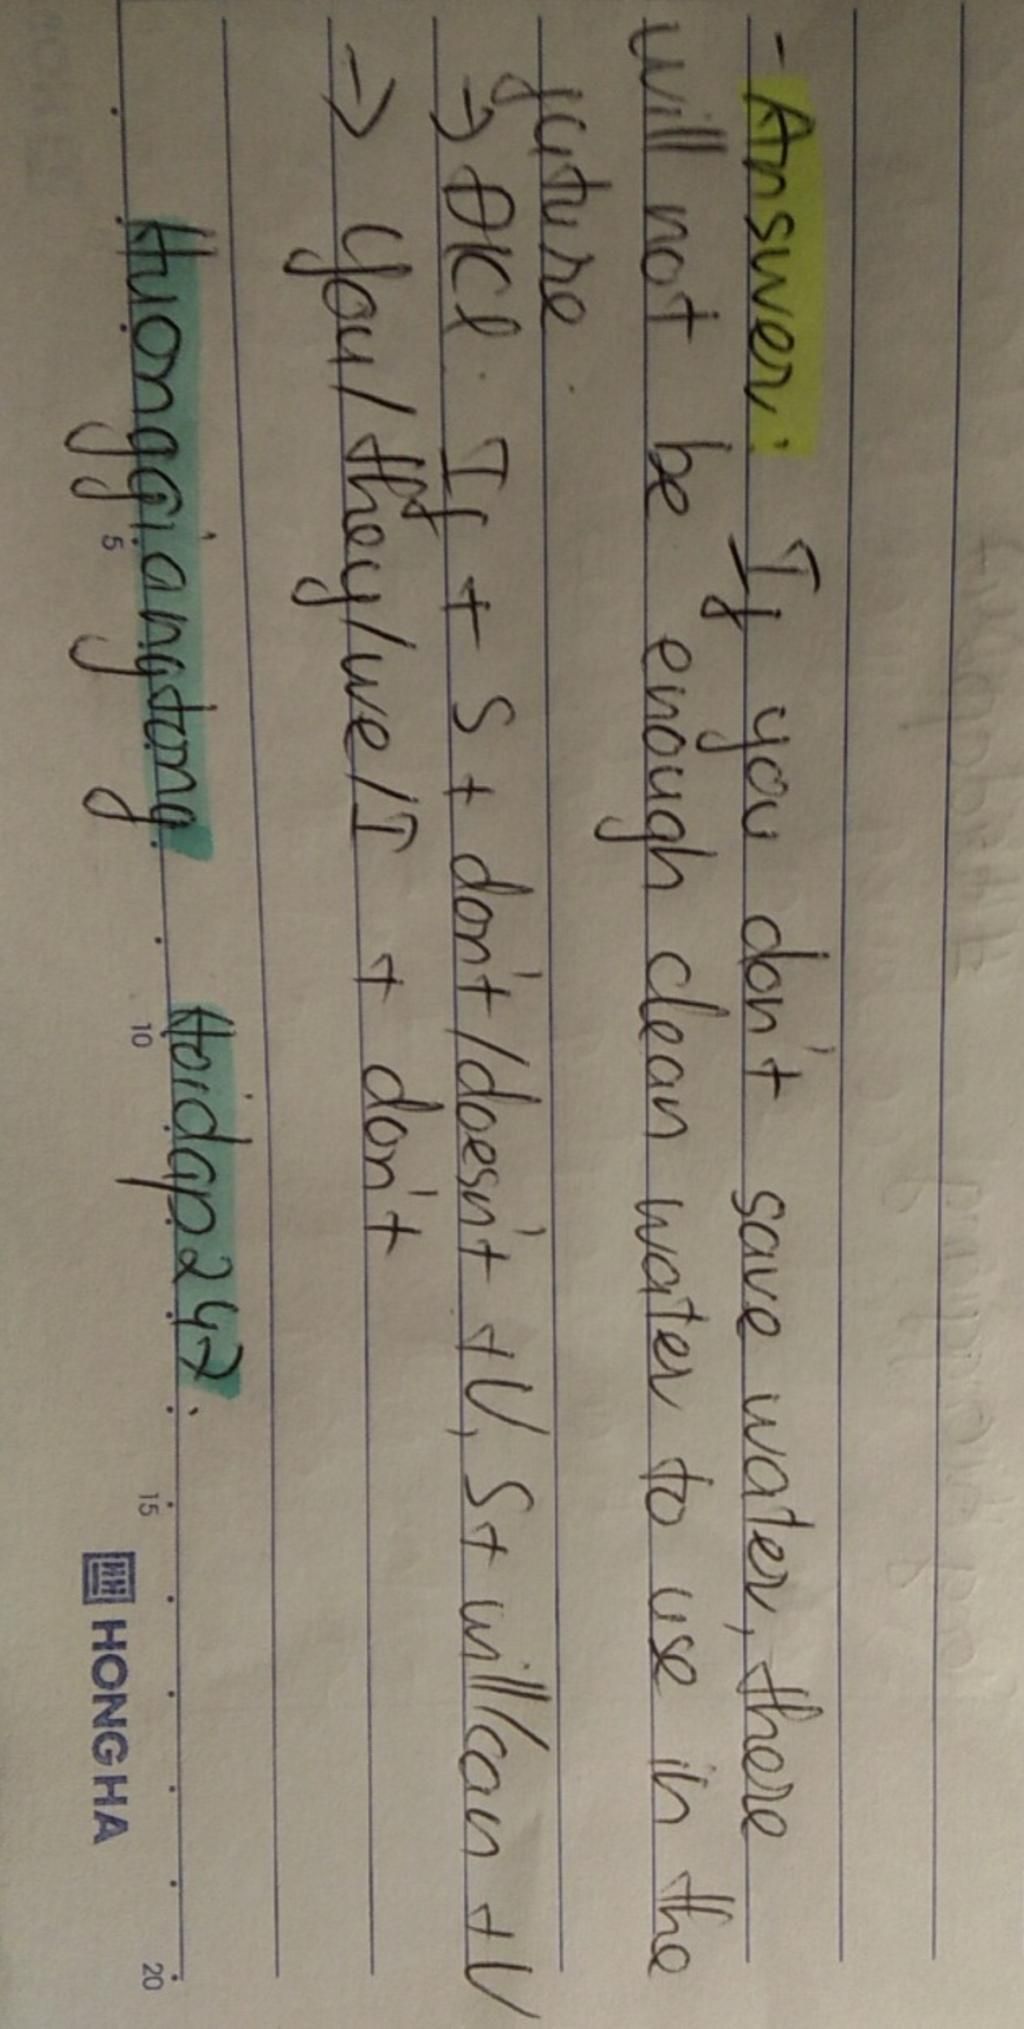 - Answer: If you don't save water, there
will not be enough clean water to use in the
future.
→ ĐK1: If + S + don't/doesn't + V, S + will/can + V
→ You/they/we/I + don't
Huonggiangtong Hoidap247.
5 10 15 20
HONG HA